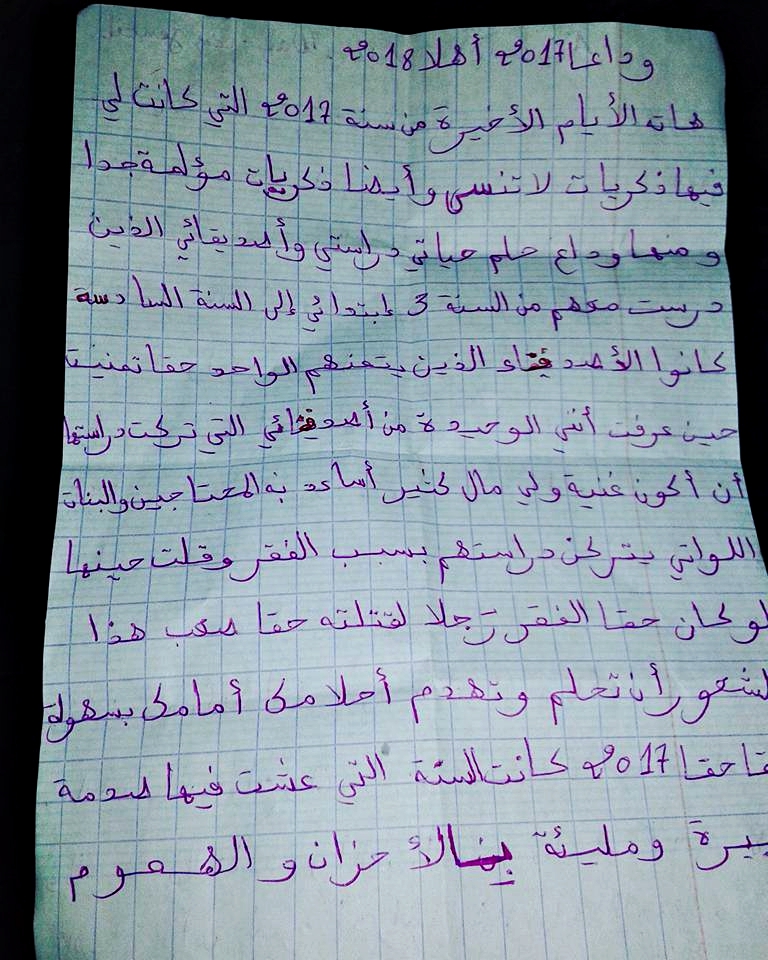 وداعا 2017 أهلا 2018
هاته الأيام الأخيرة من سنة 2017 التي كانت لي
فيها ذكريات لا تنسى وأيضا ذكريات مؤلمة جدا
ومنها وداع حلم حياتي دراستي وأصديقائي الذين
درست معهم من السنة 3 إبتدائي إلى السنة السادسة
كانوا الأصدقاء الذين يتمنهم الواحد حقا تمنيت
حين عرفت أنني الوحيدة من أصدقائي التي تركت دراستها
أن أكون غنية ولي مال كثير أساعد به المحتاجين والبنات
اللواتي يتركن دراستهم بسبب الفقر وقلت حينها
لو كان حقا الفقر رجلا لقتلته حقا صعب هذا
لشعور أن تحلم وتهدم أحلامك أمامك بسهولة
قا حقا 2017 كانت السنة التي عشت فيها صدمة
بيرة ومليئة بالأحزان والهموم